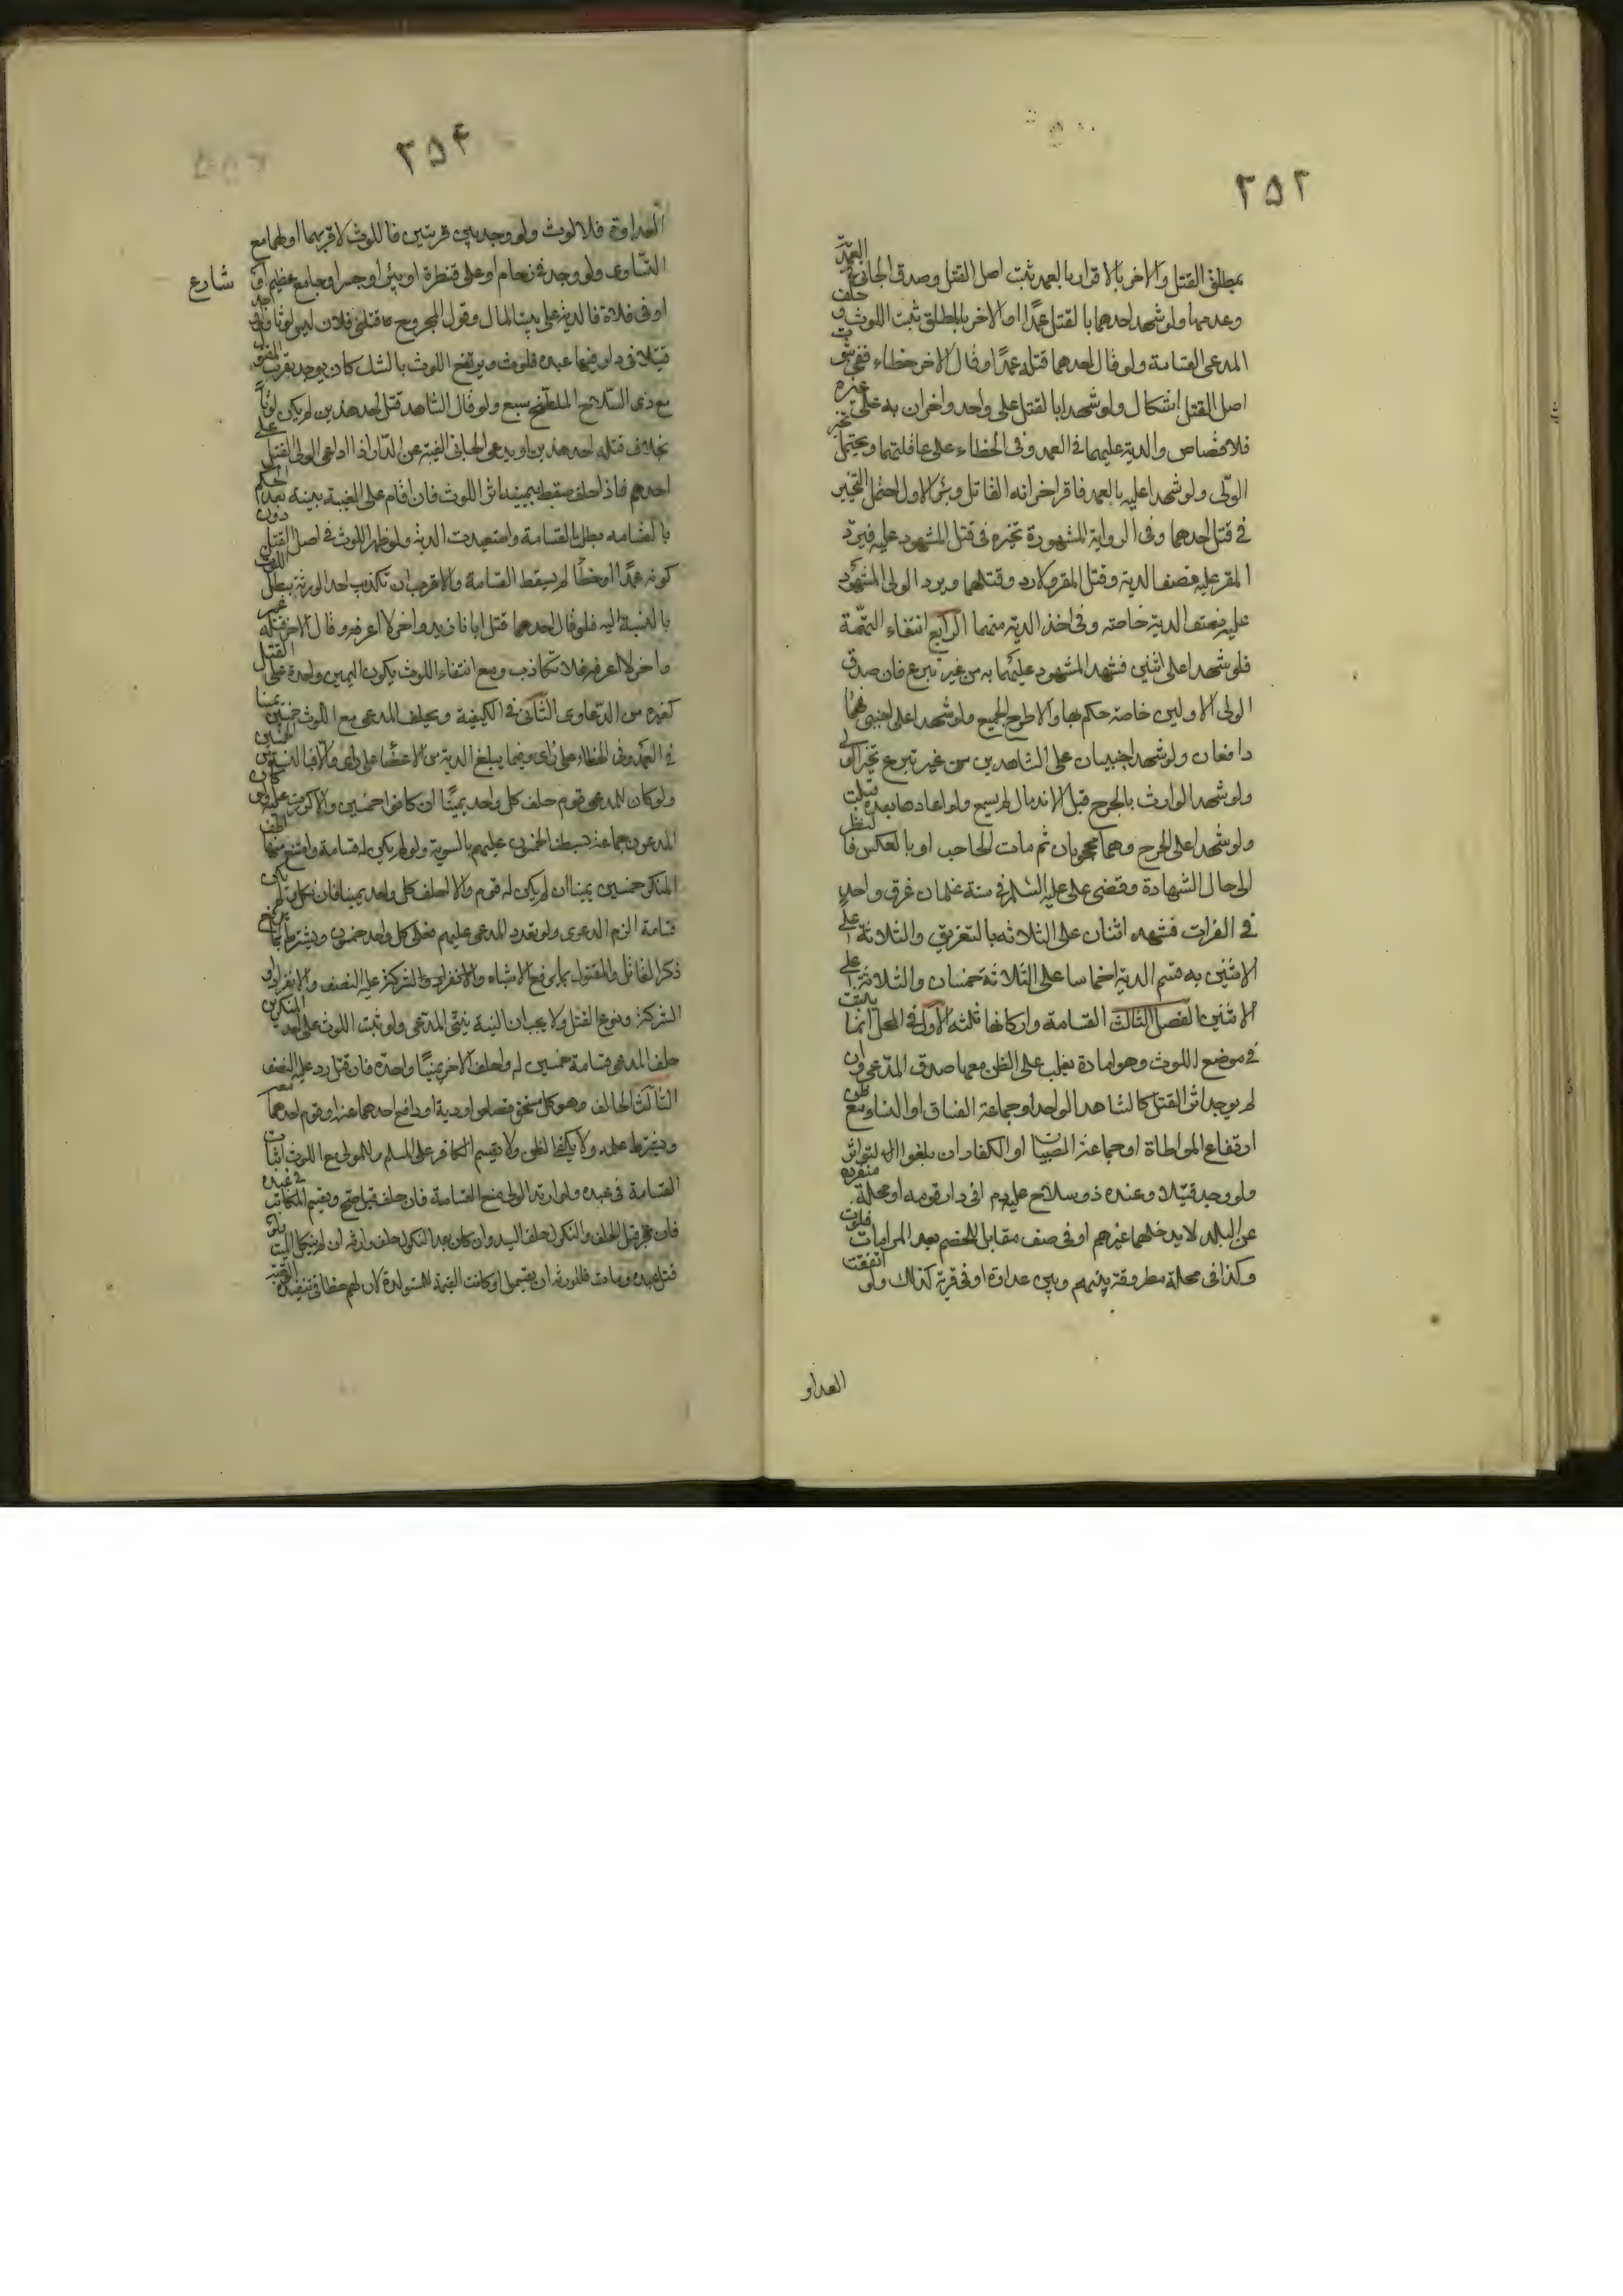 ٢٥٣
بمطلق القتل والاخر بالاقرار بالعمد ثبت اصل القتل وصدق الجاني في العمد
وعدمها ولو شهد احدهما بالقتل عمدًا والاخر بالمطلق ثبت اللوث و حلف
المدعى القسامة ولو قال احدهما قتله عمدًا وقال الاخر خطاء ففي ثبوت
اصل القتل اشكال ولو شهدا بالقتل على واحد واخران به على غيره
فلا قصاص والدية عليهما في العمد وفى الخطاء على عاقلتهما ويحتمل تخير
الولى ولو شهدا عليه بالعمد فاقر اخر انه القاتل وبرئ الاول احتمل التخيير
في قتل احدهما وفى الرواية المشهورة تخيره فى قتل المشهود عليه فيرد
المقر عليه نصف الدية وقتل المقر ولا رد وقتلهما ويرد الولى المشهود
عليه نصف الدية خاصة وفى اخذ الدية منهما الرابع انتفاء التهمة
فلو شهدا على اثنين فشهد المشهود عليهما به من غير تبرع فان صدق
الولى الاولين خاصة حكم بها والا طرح الجميع ولو شهدا على اجنبى فهما
دافعان ولو شهد اجنبيان على الشاهدين من غير تبرع تخير الولى
ولو شهد الوارث بالجرح قبل الاندمال لم يسمع ولو اعادها بعده قبلت
ولو شهدا على الجرح وهما محجوبان ثم مات الحاجب او بالعكس فالنظر
الى حال الشهادة وقضى على عليه السلم في ستة غلمان غرق واحد
في الفرات فشهد اثنان على الثلاثة بالتغريق والثلاثة على
الاثنين به قسم الدية اخماسا على الثلاثة خمسان والثلاثة على
الاثنين الفصل الثالث القسامة واركانها ثلثة الاول في المحل انما يثبت
في موضع اللوث وهو امارة يغلب على الظن معها صدق المدعى وان
لم يوجد اثر القتل كالشاهد الواحد او جماعة الفساق او النساء مع ظن
ارتفاع المواطاة او جماعة الصبيان او الكفار ان بلغوا التواتر
ولو وجد قتيلا وعنده ذو سلاح عليه دم او فى دار قوم او محلة منفرده
عن البلد لا يدخلها غيرهم او فى صف مقابل للخصم بعد المراماة فلوث
وكذا فى محلة مطروقة بينهم وبين عداوة او فى قرية كذلك ولو اتفقت
العداو
٢٥٤
العداوة فلا لوث ولو وجد بين قريتين فاللوث لاقربهما او لهما مع
التساوى ولو وجد في زحام او على قنطرة او بئر او جسر او جامع عظيم او
شارع
او فى فلاة فالدية على بيت المال وقول المجروح قتلنى فلان ليس لوثا ولو وجد
قتيلا فى دار فيها عبده فلوث ويرتفع اللوث بالشك كان يوجد بقرب المقتول
مع ذى السلاح الملطخ سبع ولو قال الشاهد قتل احد هذين لم يكن لوثًا
بخلاف قتله احد هذين او يدعى الجاني الغيبة عن الدار اذا ادعى الولى القتل على
احدهم فاذا حلف سقط بيمينه اثر اللوث فان اقام على الغيبة بينة بعد الحكم
بالقسامه بطل القسامة واستعيدت الدية ولو ظهر اللوث في اصل القتل دون
كونه عمدًا او خطأ لم يسقط القسامة والاقرب ان تكذيب احد الورثة يبطل اللوث
بالنسبة اليه فلو قال احدهما قتل ابانا زيد واخر لا اعرفه وقال الاخر قتله عمرو
واخر لا اعرفه فلا تكاذب ومع انتفاء اللوث يكون اليمين واحدة على القتل
كغيره من الدعاوى الثاني في الكيفية ويحلف المدعى مع اللوث خمسين يمينا
في العمد وفى الخطاء على راى وفيما يبلغ الدية من الاعضا على راى والا فبالنسبة من الخمسين
ولو كان للمدعى قوم حلف كل واحد يمينًا ان كانوا خمسين والا كررت عليهم ولو كان
المدعون جماعة بسطت الخمسون عليهم بالسوية ولو لم يكن له قسامة وامتنع منها احلف
المنكر خمسين يمينا ان لم يكن له قوم والا احلف كل واحد يمينا فان نكل ولم يكن له
قسامة الزم الدعوى ولو تعدد المدعى عليهم فعلى كل واحد خمسون ويشترط
ذكر القاتل والمقتول بما يرفع الاشتباه والانفراد والشركة عليه النصف والانفراد او
الشركة ونوع القتل ولا يجب ان النية نية المدعى ولو ثبت اللوث على احد المنكرين
حلف المدعى قسامة خمسين له واحلف الاخر يمينًا واحدة فان قتل رد عليه النصف
الثالث الحالف وهو كل مستحق قصاص او دية او دافع احدهما عنه او قوم احدهما
ويشترط علمه ولا يكفى الظن ولا يقسم الكافر على المسلم وللمولى مع اللوث اثبات
القسامة فى عبده ولو ارتد الولى منع القسامة فان حلف قبل صح ويقسم المكاتب في عبده
فان عجز قبل الحلف والنكول حلف السيد وان كان بعد النكول حلف وارثه ان لم ينكل الميت
قتل عبده ومات فللورثة ان يقسموا وكانت القيمة للمستولدة لان لهم حظا فى تنفيذ